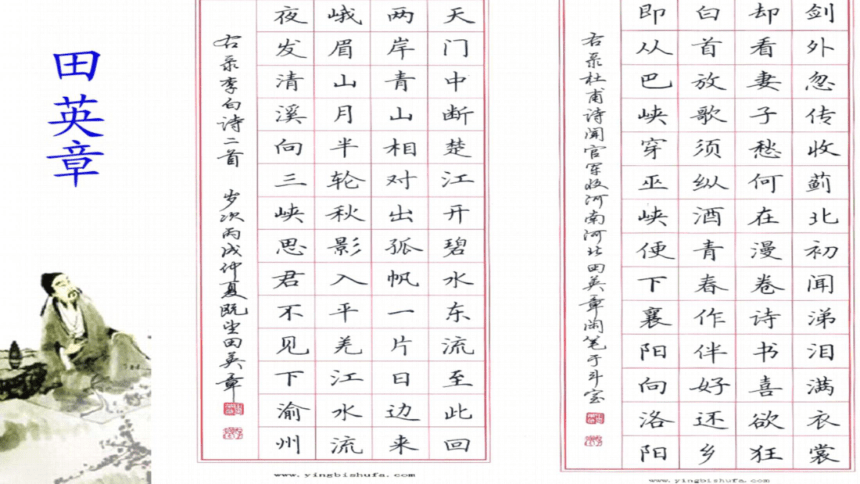 田英章
天门中断楚江开碧水东流至此回
两岸青山相对出孤帆一片日边来
峨眉山月半轮秋影入平羌江水流
夜发清溪向三峡思君不见下渝州
右录李白诗二首 岁次丙戌仲夏既望田英章
www.yingbishufa.com
剑外忽传收蓟北初闻涕泪满衣裳
却看妻子愁何在漫卷诗书喜欲狂
白首放歌须纵酒青春作伴好还乡
即从巴峡穿巫峡便下襄阳向洛阳
右录杜甫诗闻官军收河南河北田英章闲笔于斗室
www.yingbishufa.com